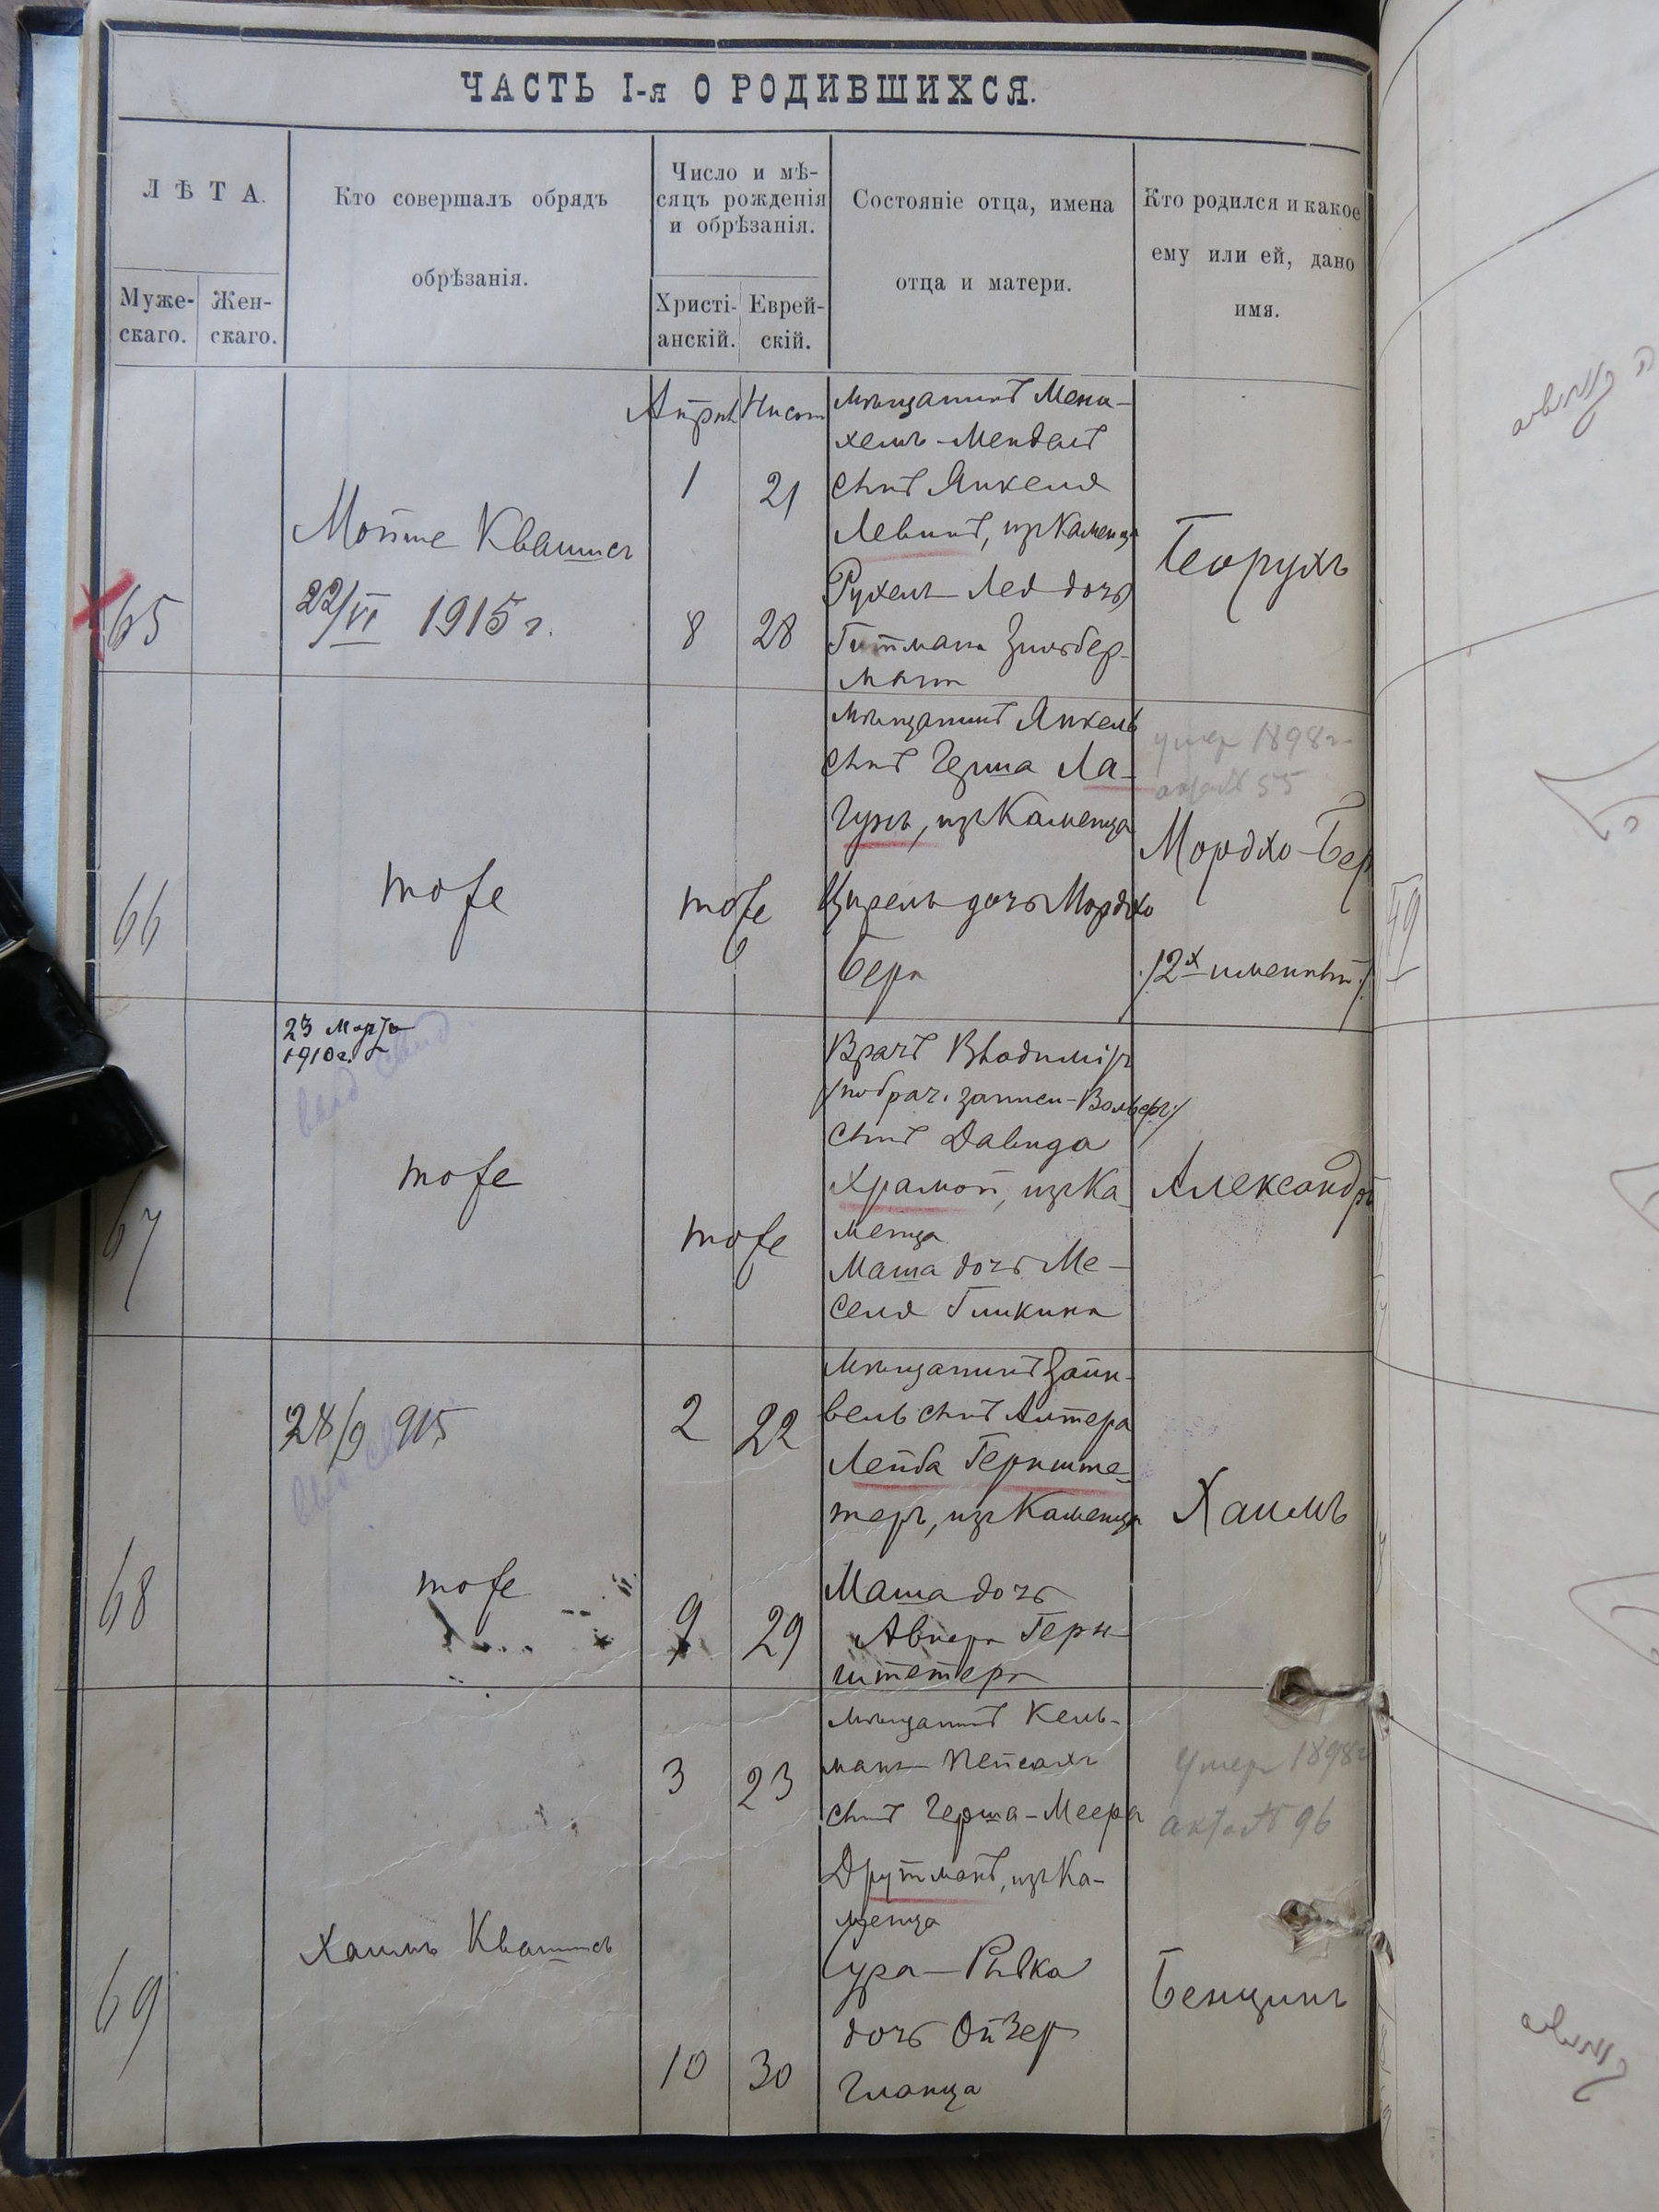 ЧАСТЬ I-я О РОДИВШИХСЯ.
ЛѢТА.
Муже-
скаго.
Жен-
скаго.
Кто совершалъ обрядъ
обрѣзанія.
Число и мѣ-
сяцъ рожденія
и обрѣзанія.
Христі-
анскій.
Еврей-
скій.
Состояніе отца, имена
отца и матери.
Кто родился и какое
ему или ей, дано
имя.
65
Мойше Квашнеъ
22/VI 1915 г.
1 21
8 28
мѣщанинъ Мена-
хемъ-Мендель
сынъ Янкеля
Левинъ, изъ Каменца
Рухель-Лея дочь
Гитмана Зильбер-
манъ
Борухъ
66
тоже
тоже
мѣщанинъ Янкель
сынъ Герша Ла-
гузъ, изъ Каменца
Цирель дочь Мордхо
Бера
умеръ 1898 г.
актъ № 55
Мордхо-Бер
/:2х именный:/
67
23 Марта
1910 г.
тоже
тоже
Врачъ Владиміръ
/по брач. записи-Вольфъ:/
сынъ Давида
Храмой, изъ Ка-
менца
Маша дочь Ме-
селя Гликина
Александръ
68
28/9 915
тоже
2 22
9 29
мѣщанинъ Зайн-
вель сынъ Алтера
Лейба Гернште-
теръ, изъ Каменца
Маша дочь
Авнера Герн-
штетера
Хаимъ
69
Хаимъ Квашнеъ
3 23
10 30
мѣщанинъ Кель-
манъ-Пейсахъ
сынъ Герша-Меера
Друтманъ, изъ Ка-
менца
Сура-Рывка
дочь Ойзер
Гланца
умеръ 1898 г
актъ № 96
Бенционъ
49